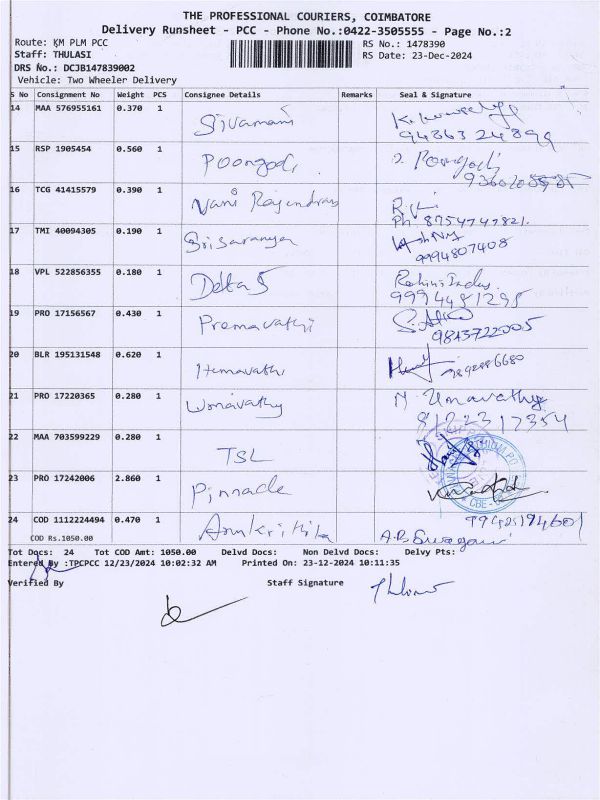 THE PROFESSIONAL COURIERS, COIMBATORE
Delivery Runsheet - PCC - Phone No.:0422-3505555 - Page No.:2
Route: KM PLM PCC RS No.: 1478390
Staff: THULASI RS Date: 23-Dec-2024
DRS No.: DCJB147839002
Vehicle: Two Wheeler Delivery
S No Consignment No Weight PCS Consignee Details Remarks Seal & Signature
14 MAA 576955161 0.370 1 Sivamani
94863 24899
15 RSP 1905454 0.560 1 Poongodi
16 TCG 41415579 0.390 1 Vani Rajendran
Ph: 8754747821.
17 TMI 40094305 0.190 1 Srisaranya
9994807408
18 VPL 522856355 0.180 1 Delta 5
9994481295
19 PRO 17156567 0.430 1 Premavathi
9843722005
20 BLR 195131548 0.620 1 Hemavathi
21 PRO 17220365 0.280 1 Umavathy M Umavathy
8122317354
22 MAA 703599229 0.280 1 TSL
23 PRO 17242006 2.860 1 Pinnacle
24 COD 1112224494 0.470 1
COD Rs.1050.00
Tot Docs: 24 Tot COD Amt: 1050.00 Delvd Docs: Non Delvd Docs: Delvy Pts:
Entered By :TPCPCC 12/23/2024 10:02:32 AM Printed On: 23-12-2024 10:11:35
Verified By Staff Signature